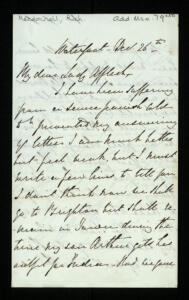 Waterfoot Dec 26th
My dear Lady Affleck,
I have been suffering
from a severe feverish cold
& prevented my answering
yr letter. I am much better
but feel weak, but I must
write a few lines to tell you
I don't think now we shall
go to Brighton but shall re
main in London during the
time my son Arthur gets his
outfit for India.